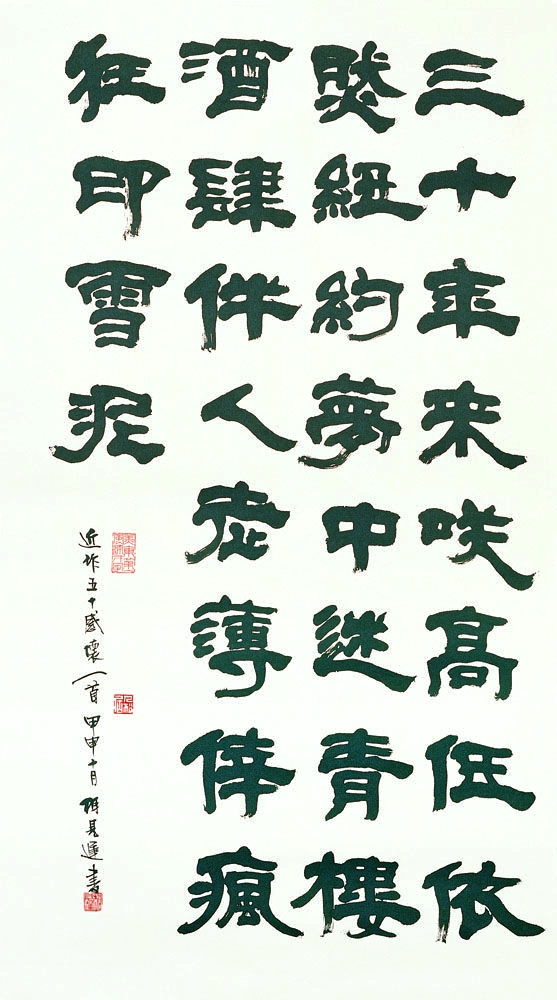 三十年来咲高低依
然紐約夢中迷青樓
酒肆伴人老薄倖瘋
狂印雪泥
近作五十感懷一首甲申十月 書